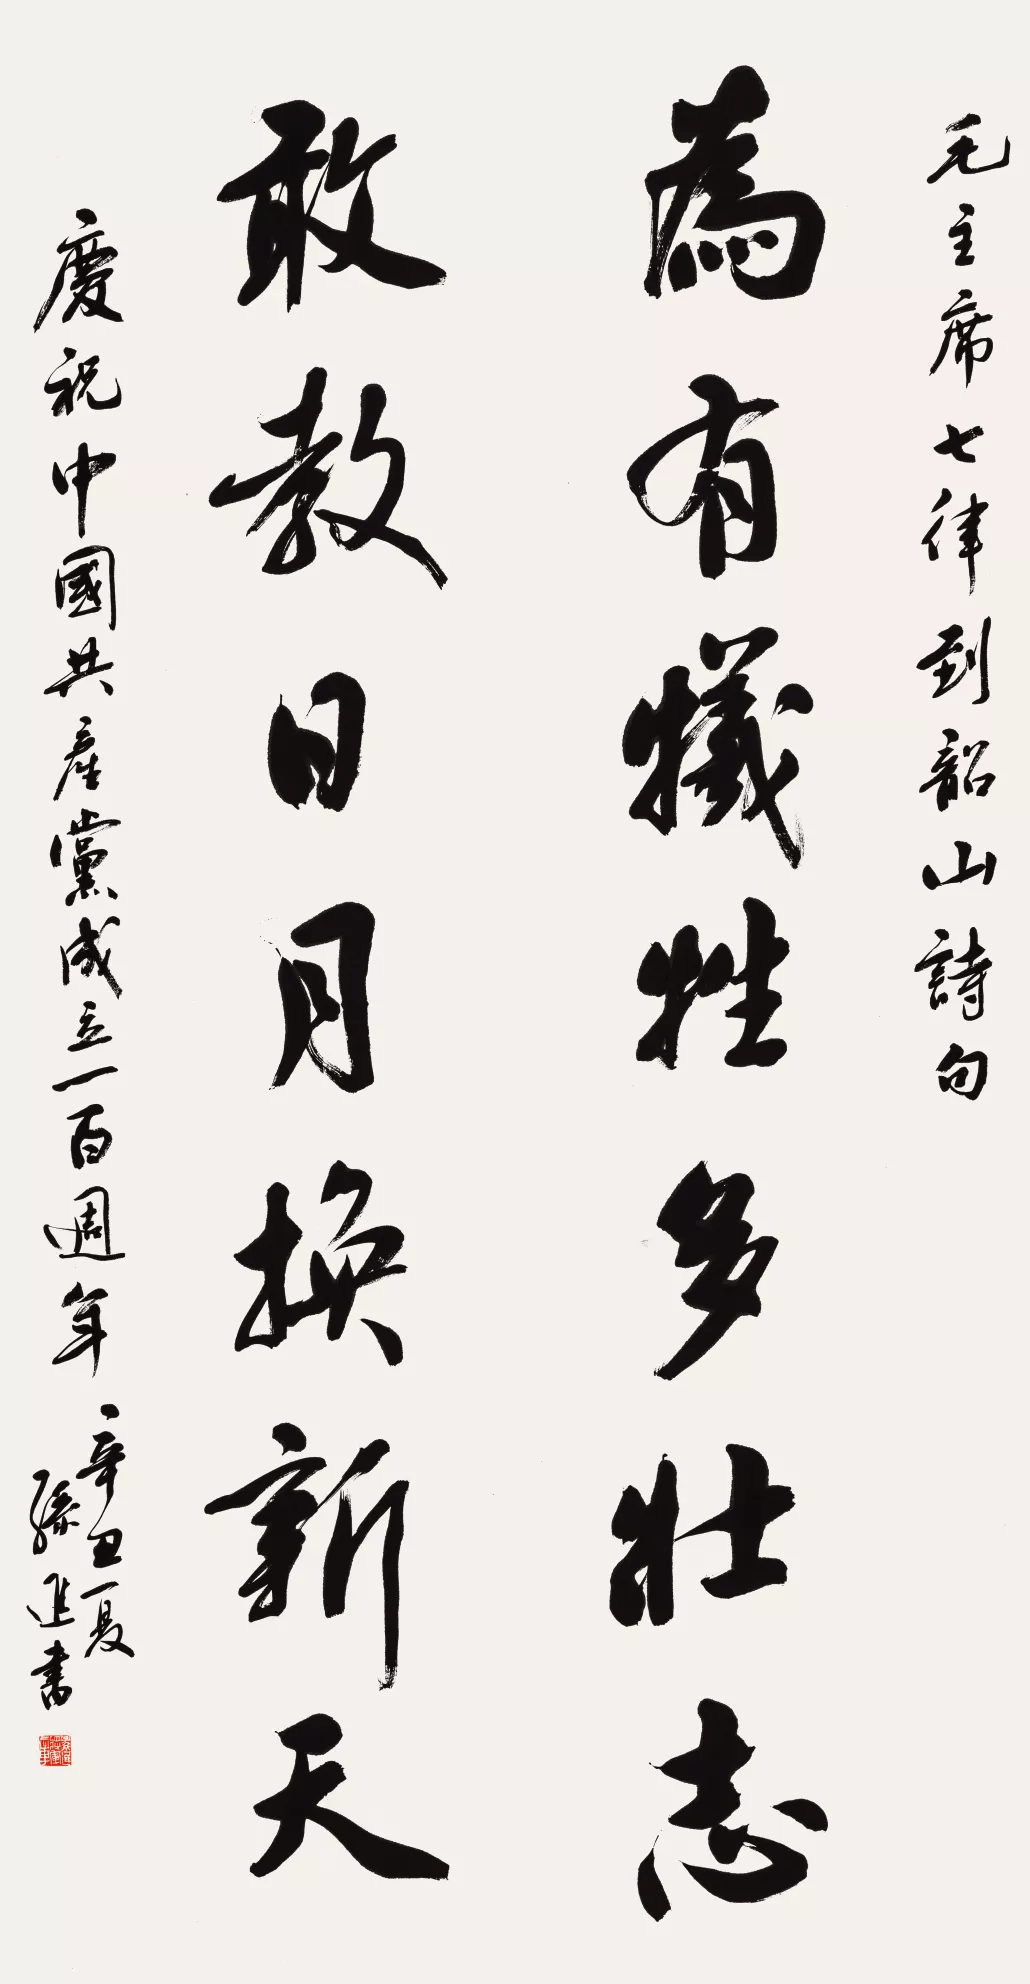 毛主席七律到韶山詩句
為有犧牲多壯志
敢教日月換新天
慶祝中國共産黨成立一百週年
辛丑夏
孫進書